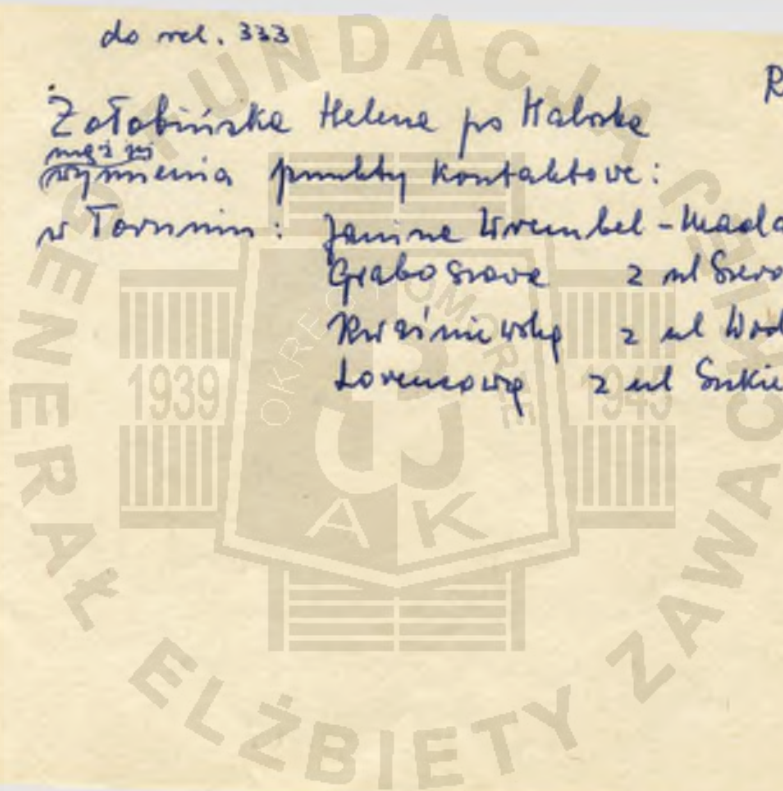 do rel. 333
R
Żołobińska Helena po
mąż jej
wymienia punkty kontaktowe:
w Toruniu: Janina Wrembel-
z ul
Kwaśniewską z ul
Lorencową z ul Sukie
FUNDACJA GENERAŁ ELŻBIETY ZAWACKIEJ
OKRĘG POMORZE
1939 1945
AK